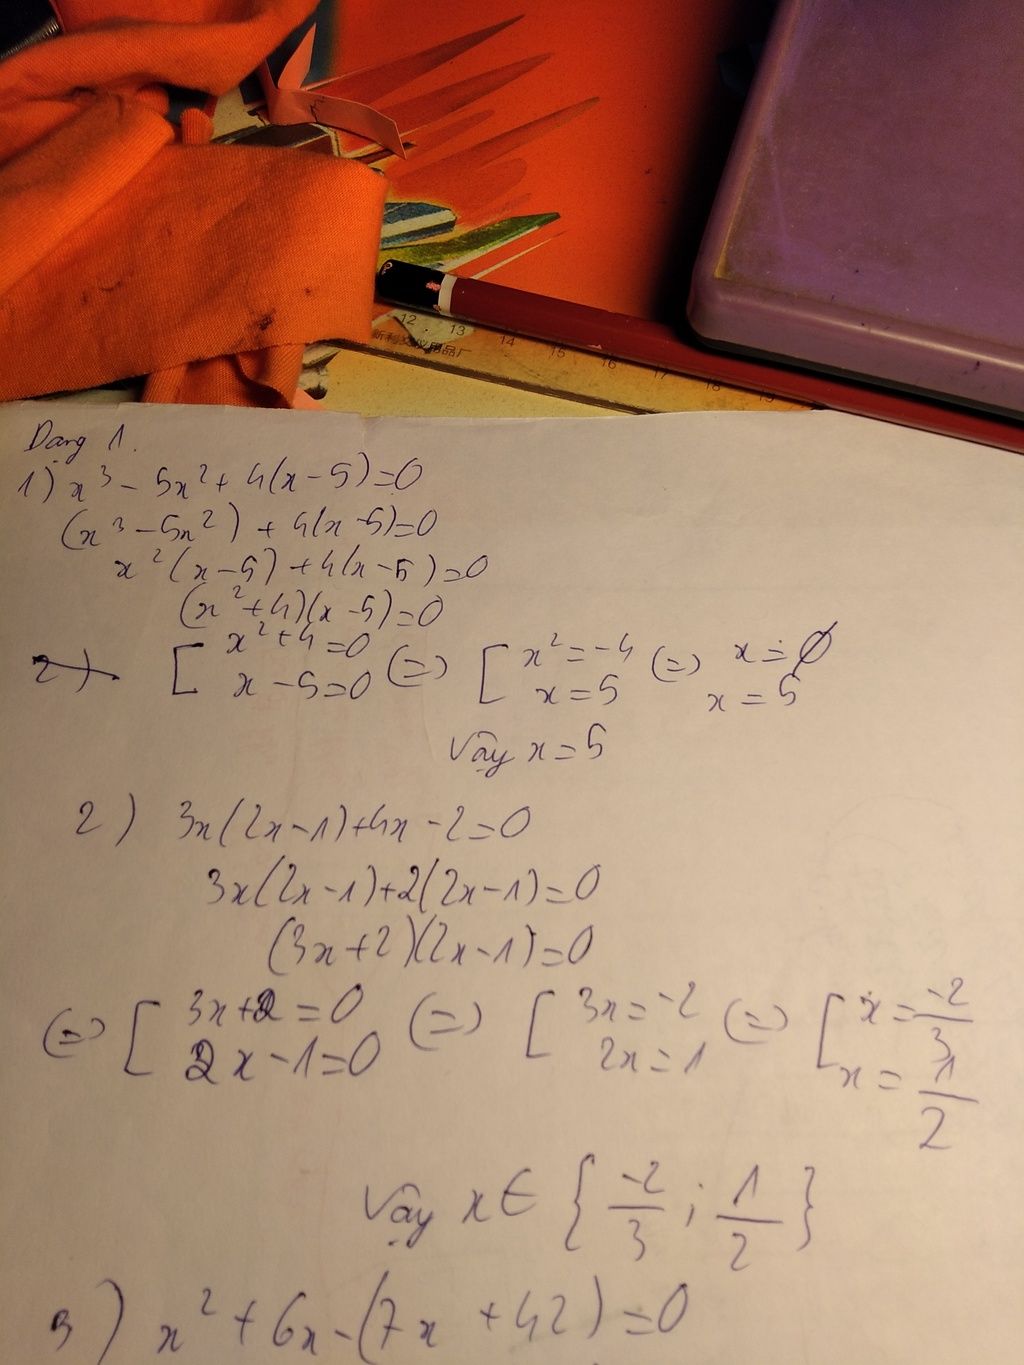 12 13 14 15 16 17 18 19
Dạng 1.
1) x³ - 5x² + 4(x - 5) = 0
(x³ - 5x²) + 4(x - 5) = 0
x²(x - 5) + 4(x - 5) = 0
(x² + 4)(x - 5) = 0
[ x² + 4 = 0 (=) [ x² = -4 (=) x = ∅
x - 5 = 0 x = 5 x = 5
Vậy x = 5
2) 3x(2x - 1) + 4x - 2 = 0
3x(2x - 1) + 2(2x - 1) = 0
(3x + 2)(2x - 1) = 0
(=) [ 3x + 2 = 0 (=) [ 3x = -2 (=) [ x = -2/3
2x - 1 = 0 2x = 1 x = 1/2
Vậy x ∈ { -2/3 ; 1/2 }
3) x² + 6x - (7x + 42) = 0